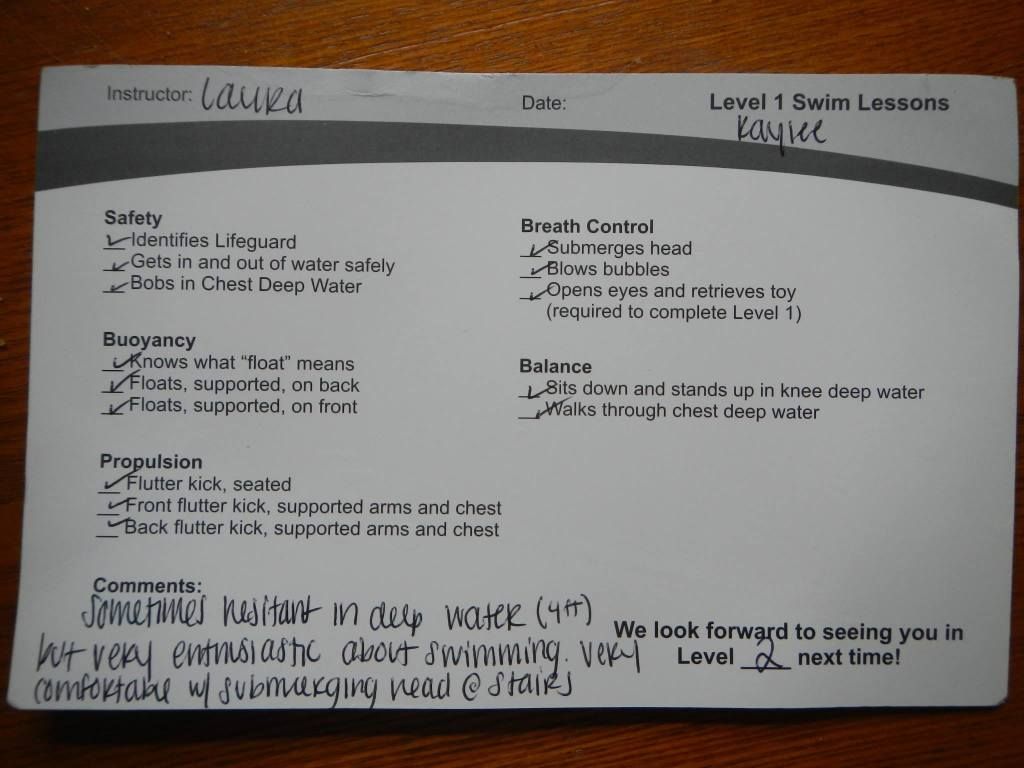 Instructor: Laura
Date:
Level 1 Swim Lessons
Kaylee
Safety
✓ Identifies Lifeguard
✓ Gets in and out of water safely
✓ Bobs in Chest Deep Water
Buoyancy
✓ Knows what “float” means
✓ Floats, supported, on back
✓ Floats, supported, on front
Propulsion
✓ Flutter kick, seated
✓ Front flutter kick, supported arms and chest
✓ Back flutter kick, supported arms and chest
Breath Control
✓ Submerges head
✓ Blows bubbles
✓ Opens eyes and retrieves toy
(required to complete Level 1)
Balance
✓ Sits down and stands up in knee deep water
✓ Walks through chest deep water
Comments:
Sometimes hesitant in deep water (4ft)
but very enthusiastic about swimming. very
comfortable w/ submerging head @ stairs
We look forward to seeing you in
Level 2 next time!